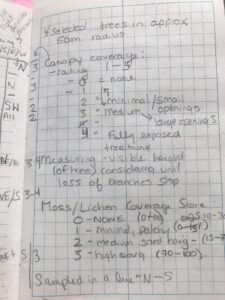 * selected trees in approx
50m radius
Canopy coverage:
- ranking 1-5
0 = none
1
2 = minimal/small
openings
3 = medium
large openings
Fully exposed
tree trunk
Measuring - visible height
(of tree) considering until
loss of branches stop
Moss/Lichen Coverage Score
0 - NONE
1 - minimal, patchy
2 - medium sized
3 - high (70-100).
Sampled in a line ~ N-S
N
3
3
2
SN
2
All
2
N/E 3-4
E/S 3-4
S 3